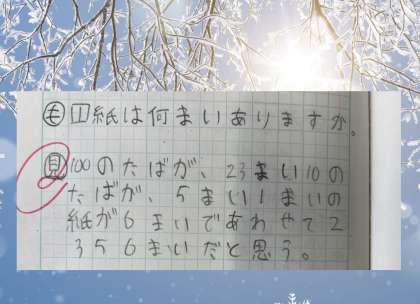 も 1 紙は何まいありますか。
見 100のたばが、23まい10の
たばが、5まい1まいの
紙が6まいであわせて2
356まいだと思う。